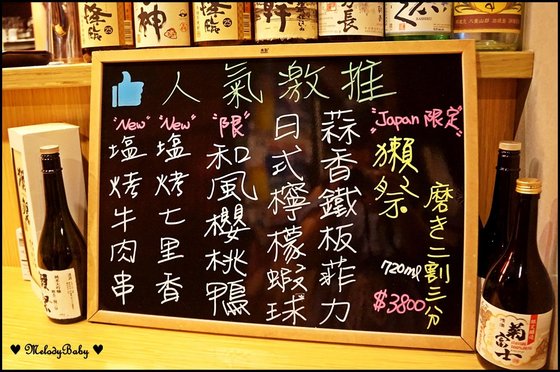 人氣激推
"Japan 限定"
獺祭
磨き二割三分
720ml
$3800
蒜香鐵板菲力
日式檸檬蝦球
"限"
和風櫻桃鴨
"New"
塩烤七里香
"New"
塩烤牛肉串
菊富士
♥ MelodyBaby ♥